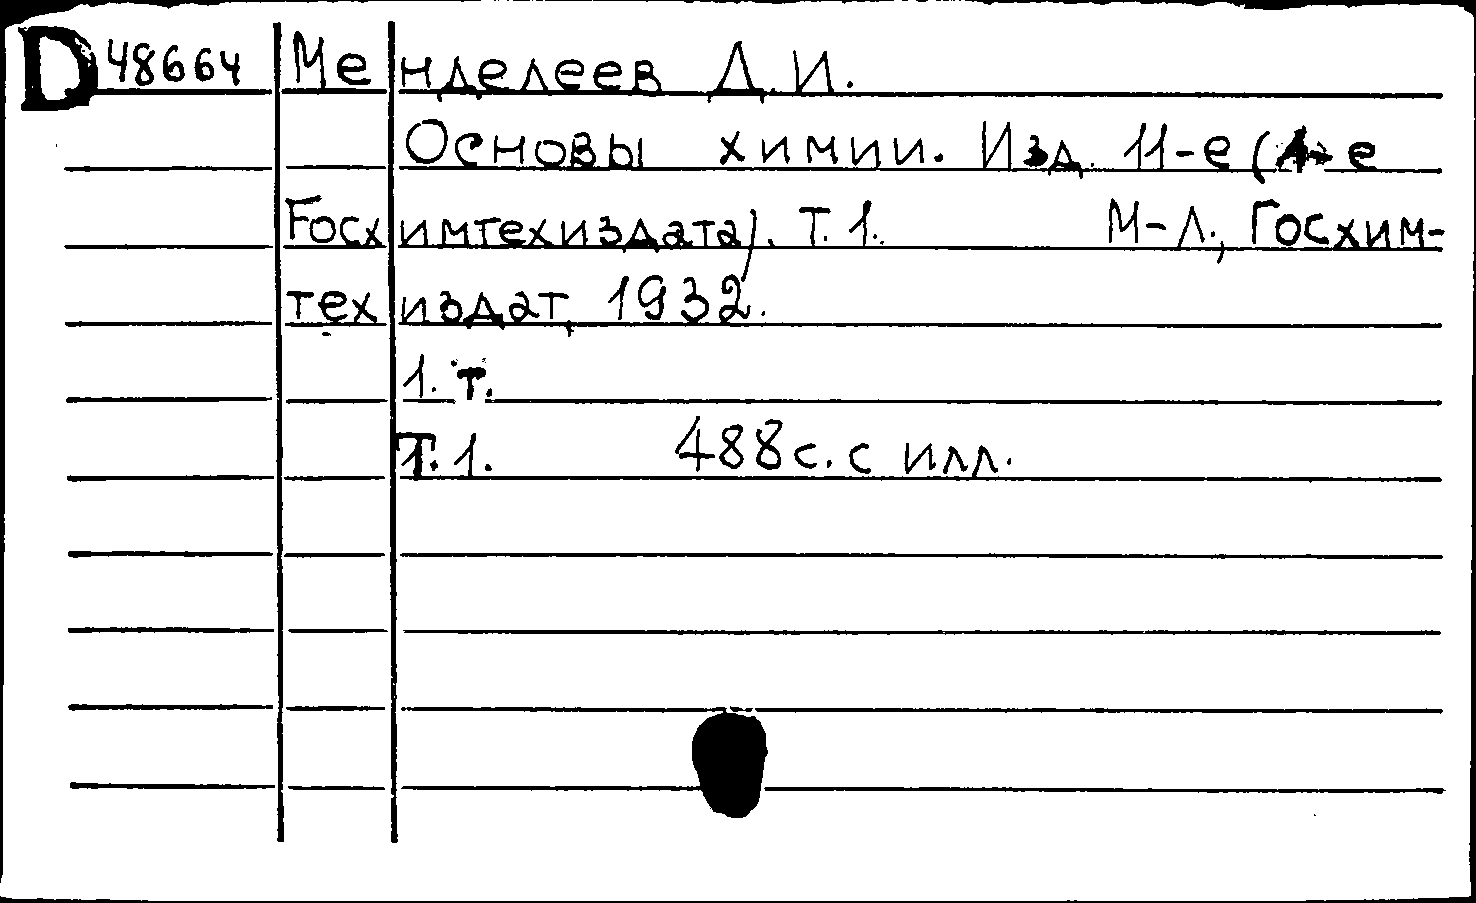 D 48664 Менделеев Д.И.
Основы химии. Изд. 11-е (1-е
Госхимтехиздата). Т. 1. М-Л., Госхим-
техиздат, 1932.
1. т.
Т. 1. 488 с. с илл.